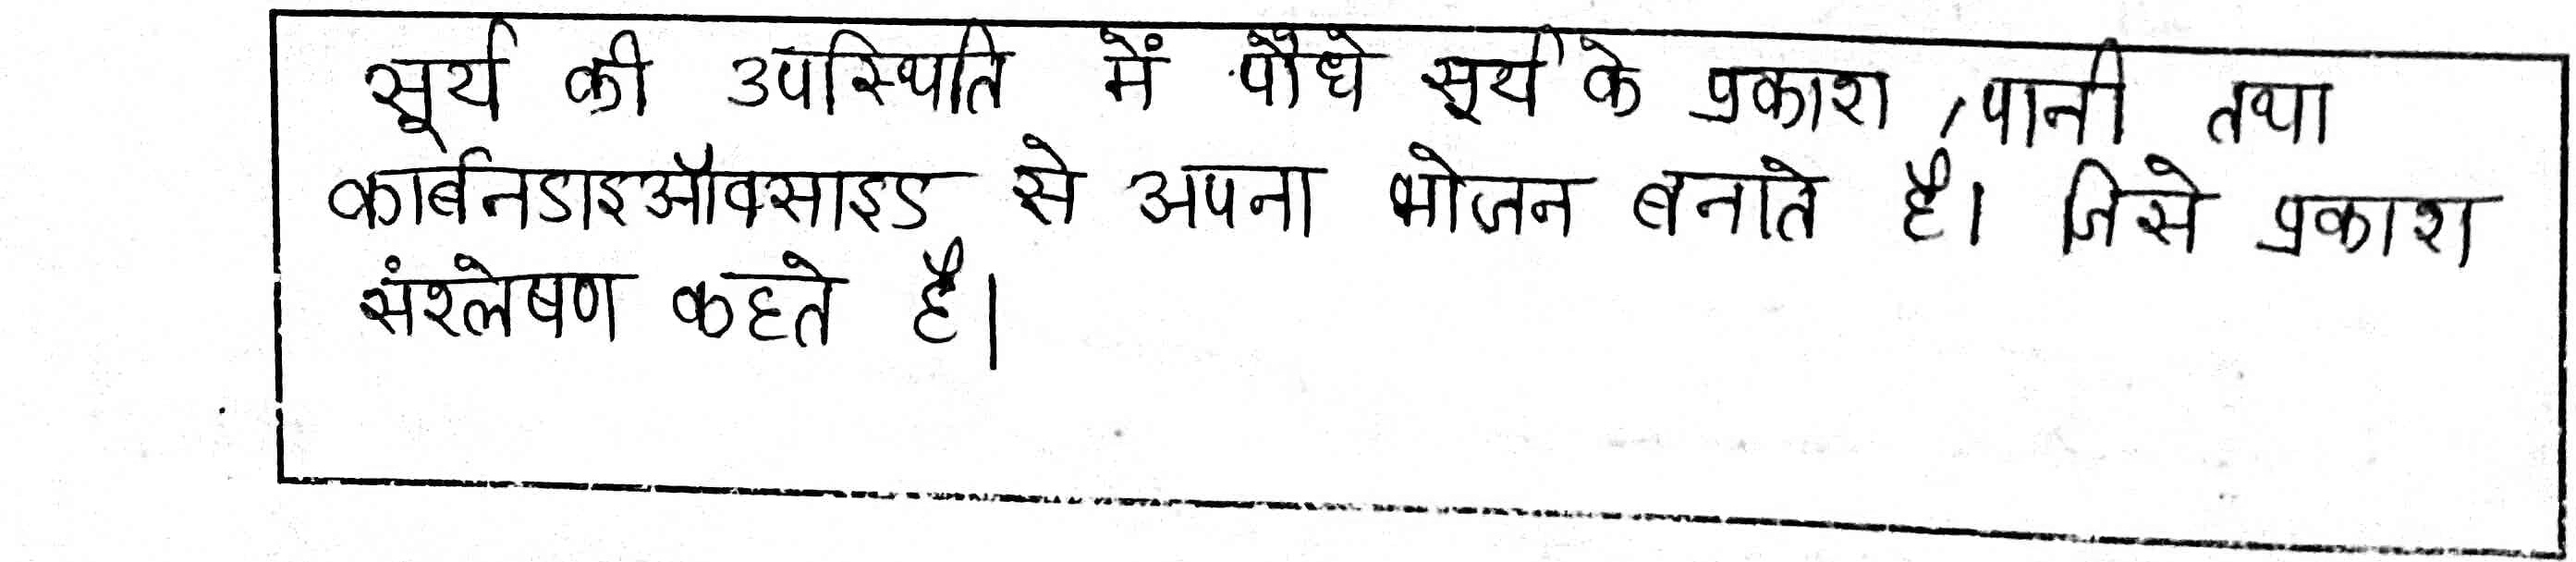 सूर्य की उपस्थिति में पौधे सूर्य के प्रकाश , पानी तथा
कार्बनडाइऑक्साइड से अपना भोजन बनाते है। जिसे प्रकाश
संश्लेषण कहते है।